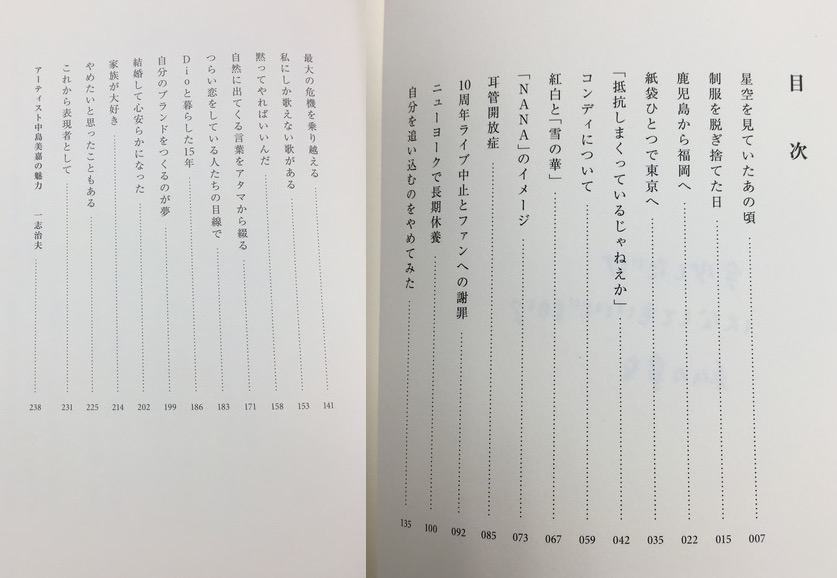 目次
星空を見ていたあの頃 007
制服を脱ぎ捨てた日 015
鹿児島から福岡へ 022
紙袋ひとつで東京へ 035
「抵抗しまくっているじゃねえか」 042
コンディについて 059
紅白と「雪の華」 067
「NANA」のイメージ 073
耳管開放症 085
10周年ライブ中止とファンへの謝罪 092
ニューヨークで長期休養 100
自分を追い込むのをやめてみた 135
最大の危機を乗り越える 141
私にしか歌えない歌がある 153
黙ってやればいいんだ 158
自然に出てくる言葉をアタマから綴る 171
つらい恋をしている人たちの目線で 183
Dioと暮らした15年 186
自分のブランドをつくるのが夢 199
結婚して心安らかになった 202
家族が大好き 214
やめたいと思ったこともある 225
これから表現者として 231
アーティスト中島美嘉の魅力 一志治夫 238